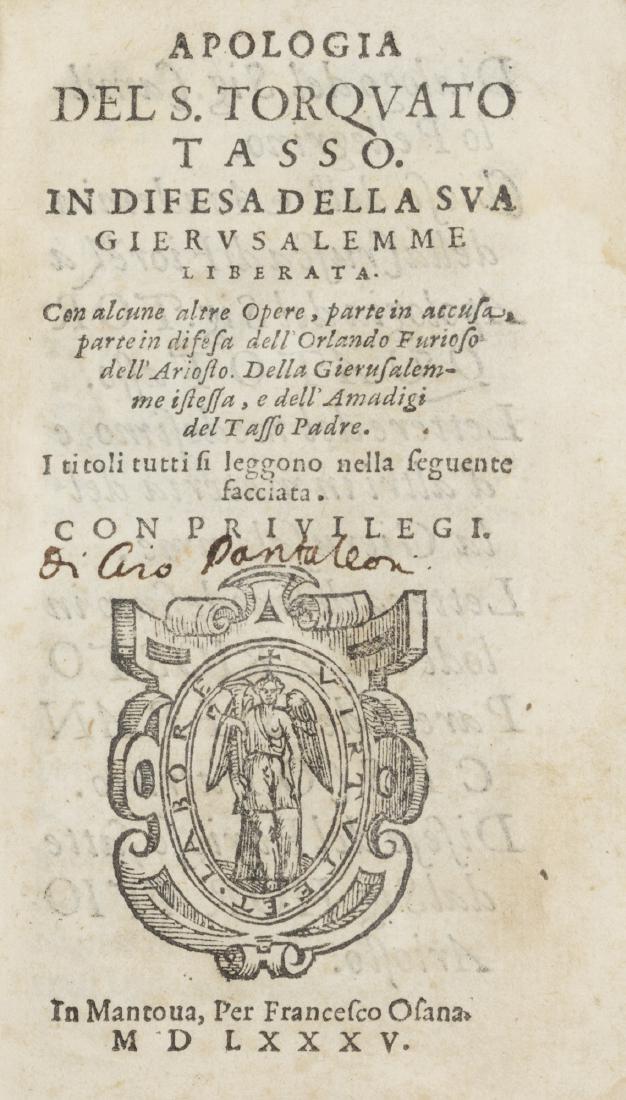 APOLOGIA
DEL S. TORQVATO
TASSO.
IN DIFESA DELLA SVA
GIERVSALEMME
LIBERATA.
Con alcune altre Opere, parte in accuſa,
parte in difeſa dell'Orlando Furioſo
dell'Arioſto. Della Gieruſalem-
me iſteſſa, e dell'Amadigi
del Taſſo Padre.
I titoli tutti ſi leggono nella ſeguente
facciata.
CON PRIVILEGI.
Di Ciro Pantaleoni
VIRTVTE ET LABORE
In Mantoua, Per Franceſco Oſana.
MDLXXXV.